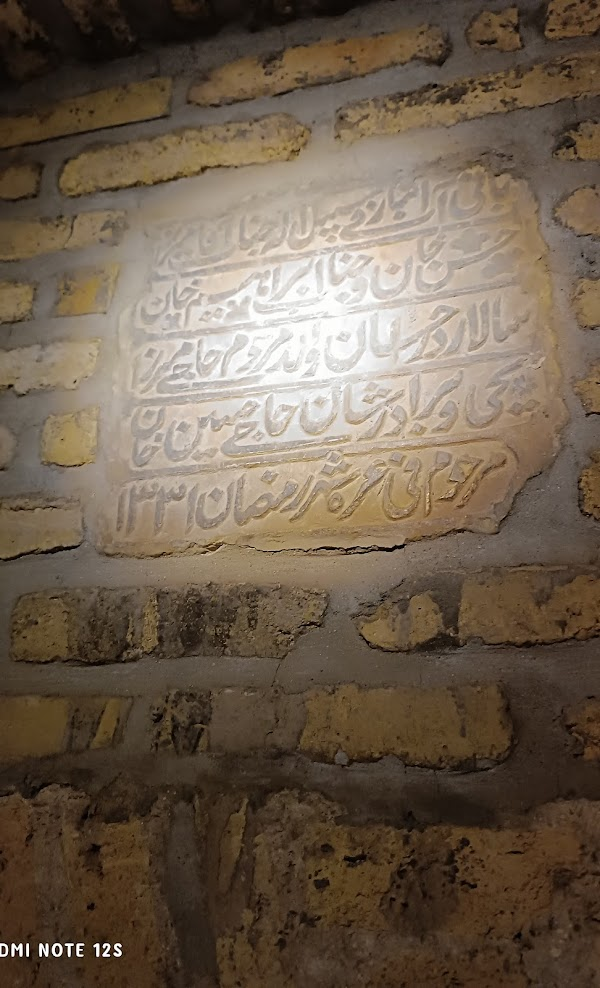 بانی آب انبار و سپلار جناب آقا میرزا
حسن خان و جناب ابراهیم خان
سالار خرسلان ولد مرحوم حاجی میرزا
یحیی و برادرشان حاجی حسین خان
مرحوم فی غره شهر رمضان ۱۳۳۱
REDMI NOTE 12S